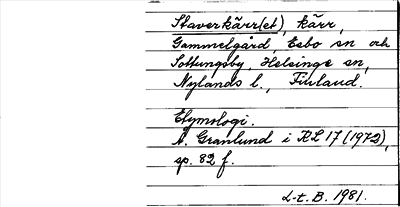 Staverkärr(et), kärr,
Gammelgård, Esbo sn och
Sottungsby, Helsinge sn,
Nylands l., Finland.
Etymologi.
Å. Granlund i RL 17 (1972),
sp. 82 f.
L-t. B. 1981.